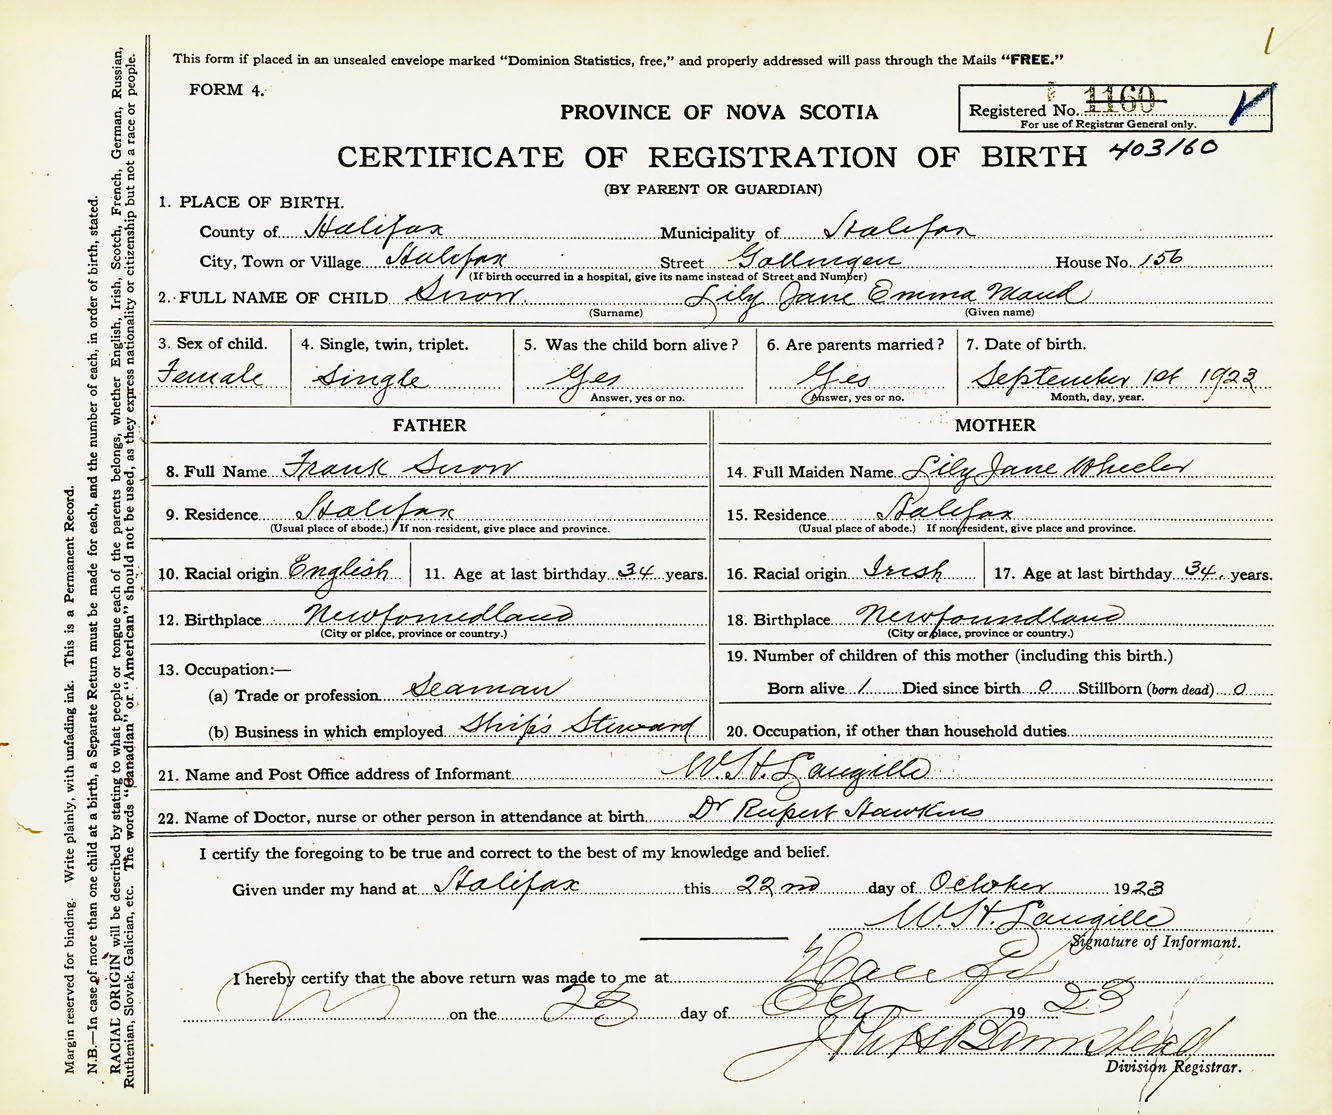 This form if placed in an unsealed envelope marked "Dominion Statistics, free," and properly addressed will pass through the Mails "FREE."
FORM 4.
PROVINCE OF NOVA SCOTIA
Registered No. 1160
For use of Registrar General only.
CERTIFICATE OF REGISTRATION OF BIRTH 403160
(BY PARENT OR GUARDIAN)
1. PLACE OF BIRTH.
County of Halifax Municipality of Halifax
City, Town or Village Halifax Street Gottingen House No. 156
(If birth occurred in a hospital, give its name instead of Street and Number)
2. FULL NAME OF CHILD Snow Lily Jane Emma Maud
(Surname) (Given name)
3. Sex of child. 4. Single, twin, triplet. 5. Was the child born alive? 6. Are parents married? 7. Date of birth.
Female Single Yes Yes September 1st 1923
Answer, yes or no. Answer, yes or no. Month, day, year.
FATHER MOTHER
8. Full Name Frank Snow 14. Full Maiden Name Lily Jane Wheeler
9. Residence Halifax 15. Residence Halifax
(Usual place of abode.) If non-resident, give place and province. (Usual place of abode.) If non-resident, give place and province.
10. Racial origin English 11. Age at last birthday 34 years. 16. Racial origin Irish 17. Age at last birthday 34 years.
12. Birthplace Newfoundland 18. Birthplace Newfoundland
(City or place, province or country.) (City or place, province or country.)
13. Occupation:— 19. Number of children of this mother (including this birth.)
(a) Trade or profession Seaman Born alive 1 Died since birth 0 Stillborn (born dead) 0
(b) Business in which employed Ship's Steward 20. Occupation, if other than household duties
21. Name and Post Office address of Informant W. H. Langille
22. Name of Doctor, nurse or other person in attendance at birth Dr Rupert Hawkins
I certify the foregoing to be true and correct to the best of my knowledge and belief.
Given under my hand at Halifax this 22nd day of October 1923
W. H. Langille
Signature of Informant.
I hereby certify that the above return was made to me at Halifax
on the 23 day of Oct 1923
Division Registrar.
Margin reserved for binding. Write plainly, with unfading ink. This is a Permanent Record.
N.B.—In case of more than one child at a birth, a Separate Return must be made for each, and the number of each, in order of birth, stated.
RACIAL ORIGIN will be described by stating to what people or tongue each of the parents belongs, whether English, Irish, Scotch, French, German, Russian,
Ruthenian, Slovak, Galician, etc. The words "Canadian" or "American" should not be used, as they express nationality or citizenship but not a race or people.